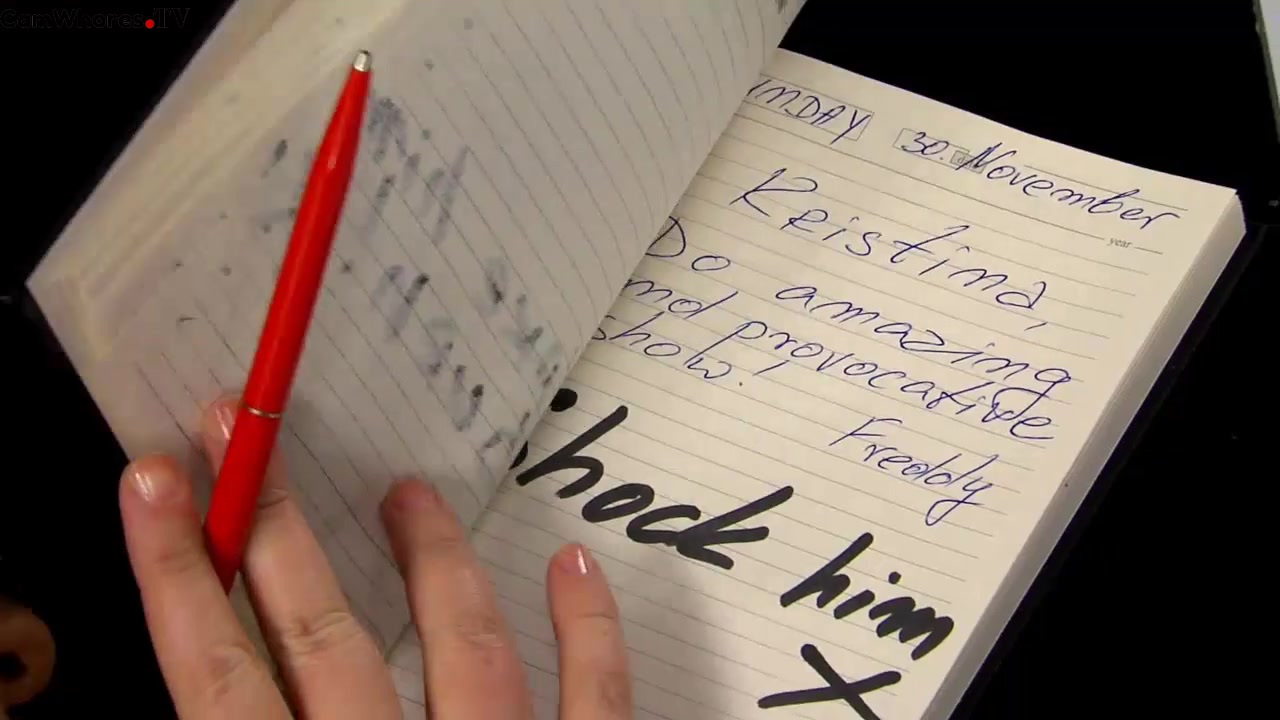 CamWhores.TV
UNDAY 30. November
year
Kristina,
Do amazing
and provocative
show.
Freddy
Shock him
X